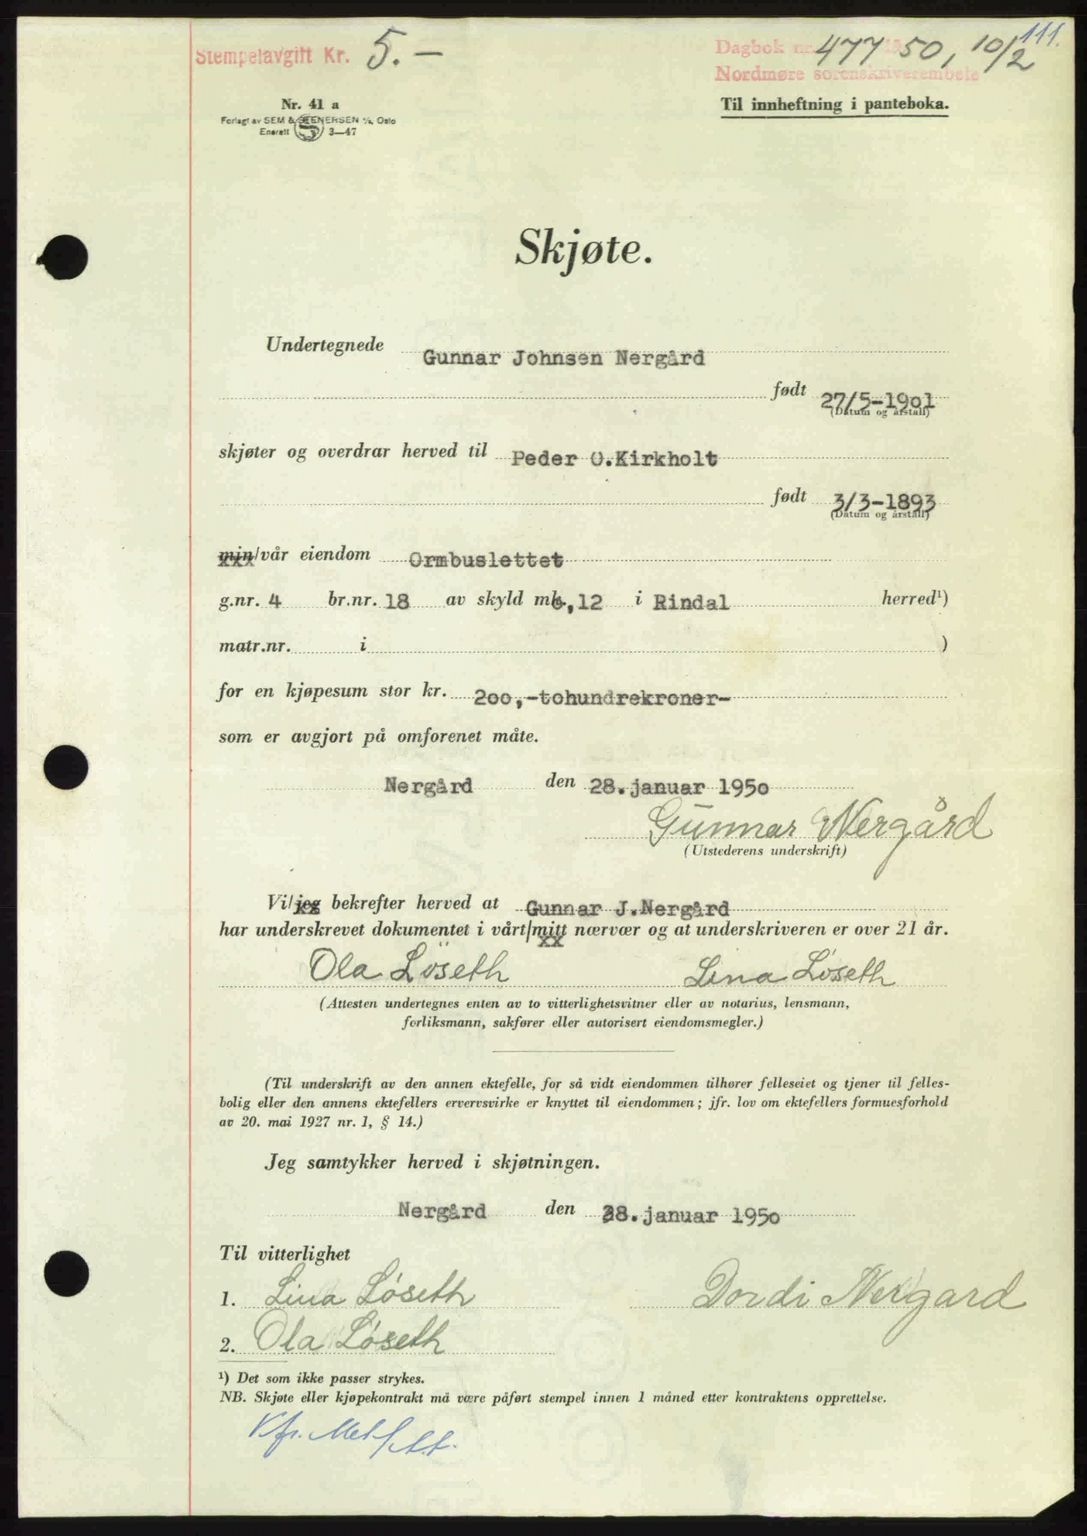 111.
Stempelavgift Kr. 5.—
Dagbok nr. 477 50, 10/2
Nordmøre sorenskriverembete
Nr. 41 a
Til innheftning i panteboka.
Forlagt av SEM & STENERSEN A/S, Oslo
Enerett 3—47
Skjøte.
Undertegnede Gunnar Johnsen Nergård
født 27/5-1901
(Datum og årstall)
skjøter og overdrar herved til Peder O.Kirkholt
født 3/3-1893
(Datum og årstall)
min/vår eiendom Ormbuslettet
g.nr. 4 br.nr. 18 av skyld mk. 0,12 i Rindal herred¹)
matr.nr. i )
for en kjøpesum stor kr. 200,-tohundrekroner-
som er avgjort på omforenet måte.
Nergård den 28.januar 1950
Gunnar Nergård
(Utstederens underskrift)
Vi/jeg bekrefter herved at Gunnar J.Nergård
har underskrevet dokumentet i vårt/mitt nærvær og at underskriveren er over 21 år.
Ola Løseth Lina Løseth
(Attesten undertegnes enten av to vitterlighetsvitner eller av notarius, lensmann,
forliksmann, sakfører eller autorisert eiendomsmegler.)
(Til underskrift av den annen ektefelle, for så vidt eiendommen tilhører felleseiet og tjener til felles-
bolig eller den annens ektefellers ervervsvirke er knyttet til eiendommen; jfr. lov om ektefellers formuesforhold
av 20. mai 1927 nr. 1, § 14.)
Jeg samtykker herved i skjøtningen.
Nergård den 28.januar 1950
Til vitterlighet
1. Lina Løseth Dordi Nergard
2. Ola Løseth
¹) Det som ikke passer strykes.
NB. Skjøte eller kjøpekontrakt må være påført stempel innen 1 måned etter kontraktens opprettelse.